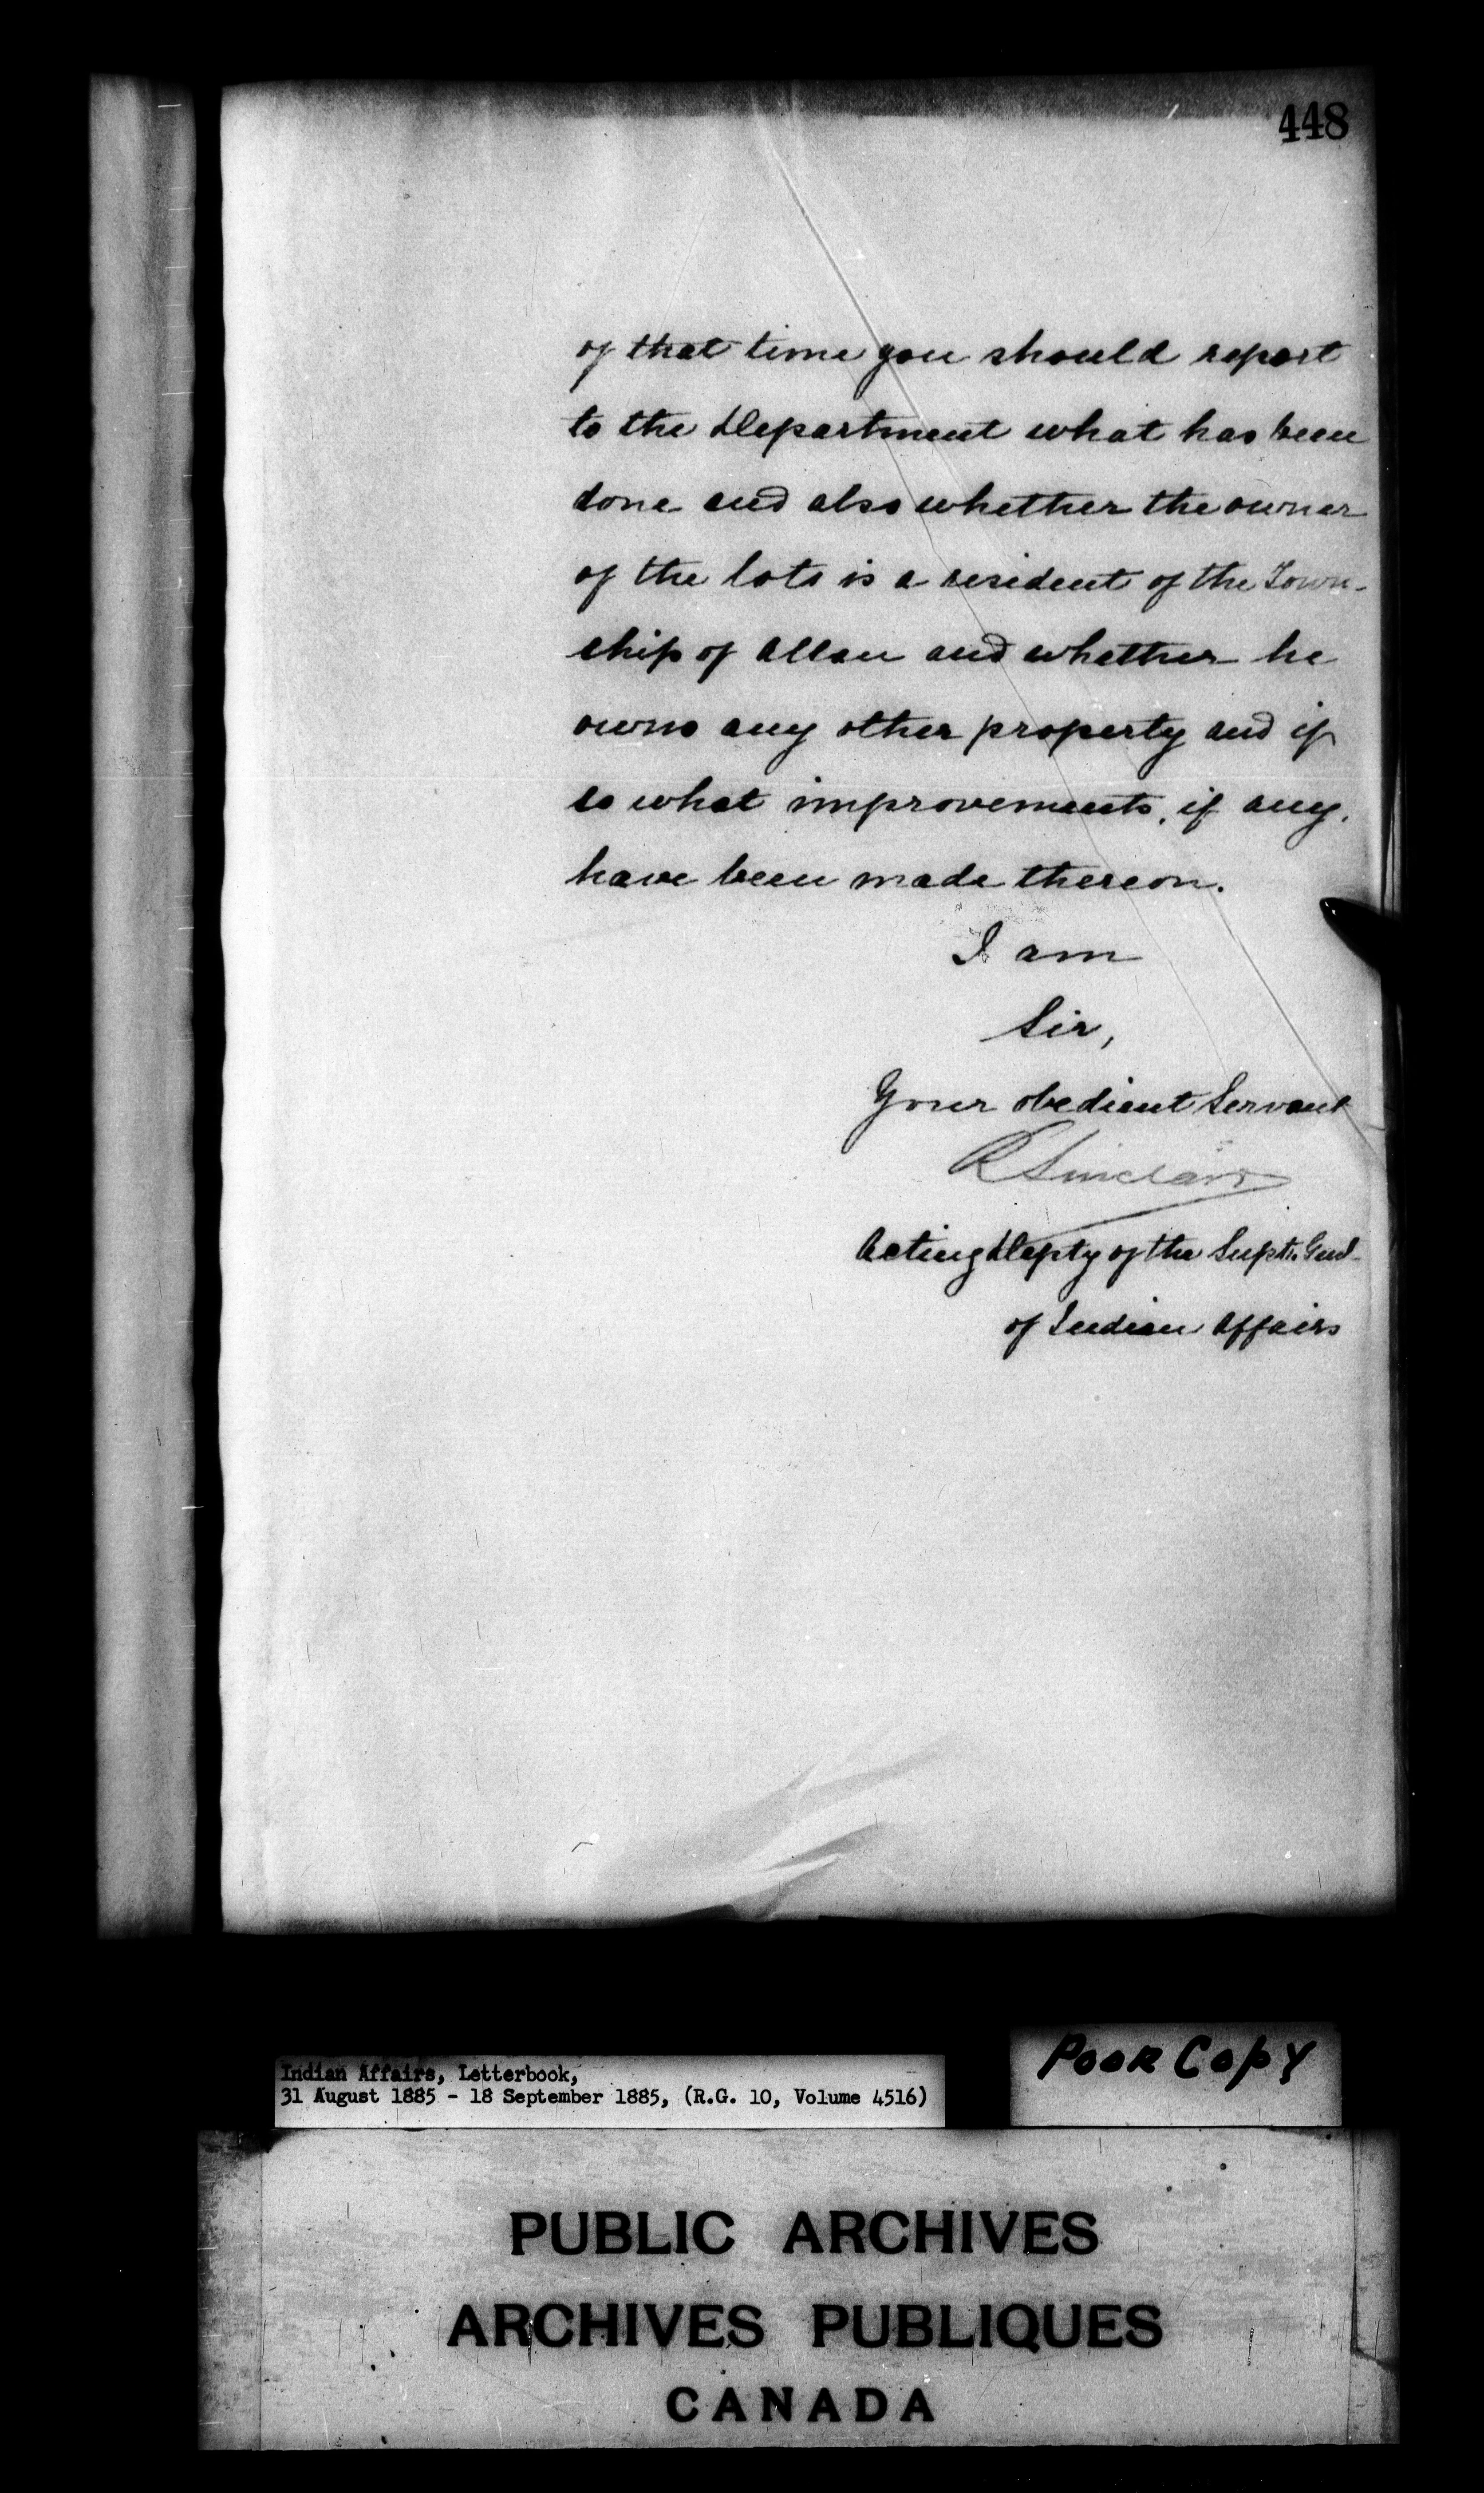 448
of that time you should report
to the Department what has been
done and also whether the owner
of the lots is a resident of the Town-
ship of Allan and whether he
owns any other property and if
so what improvements, if any,
have been made thereon.
I am
Sir,
Your obedient Servant
R Sinclair
Acting Depty of the Supt. Genl.
of Indian Affairs
Indian Affairs, Letterbook,
31 August 1885 - 18 September 1885, (R.G. 10, Volume 4516)
Poor Copy
PUBLIC ARCHIVES
ARCHIVES PUBLIQUES
CANADA